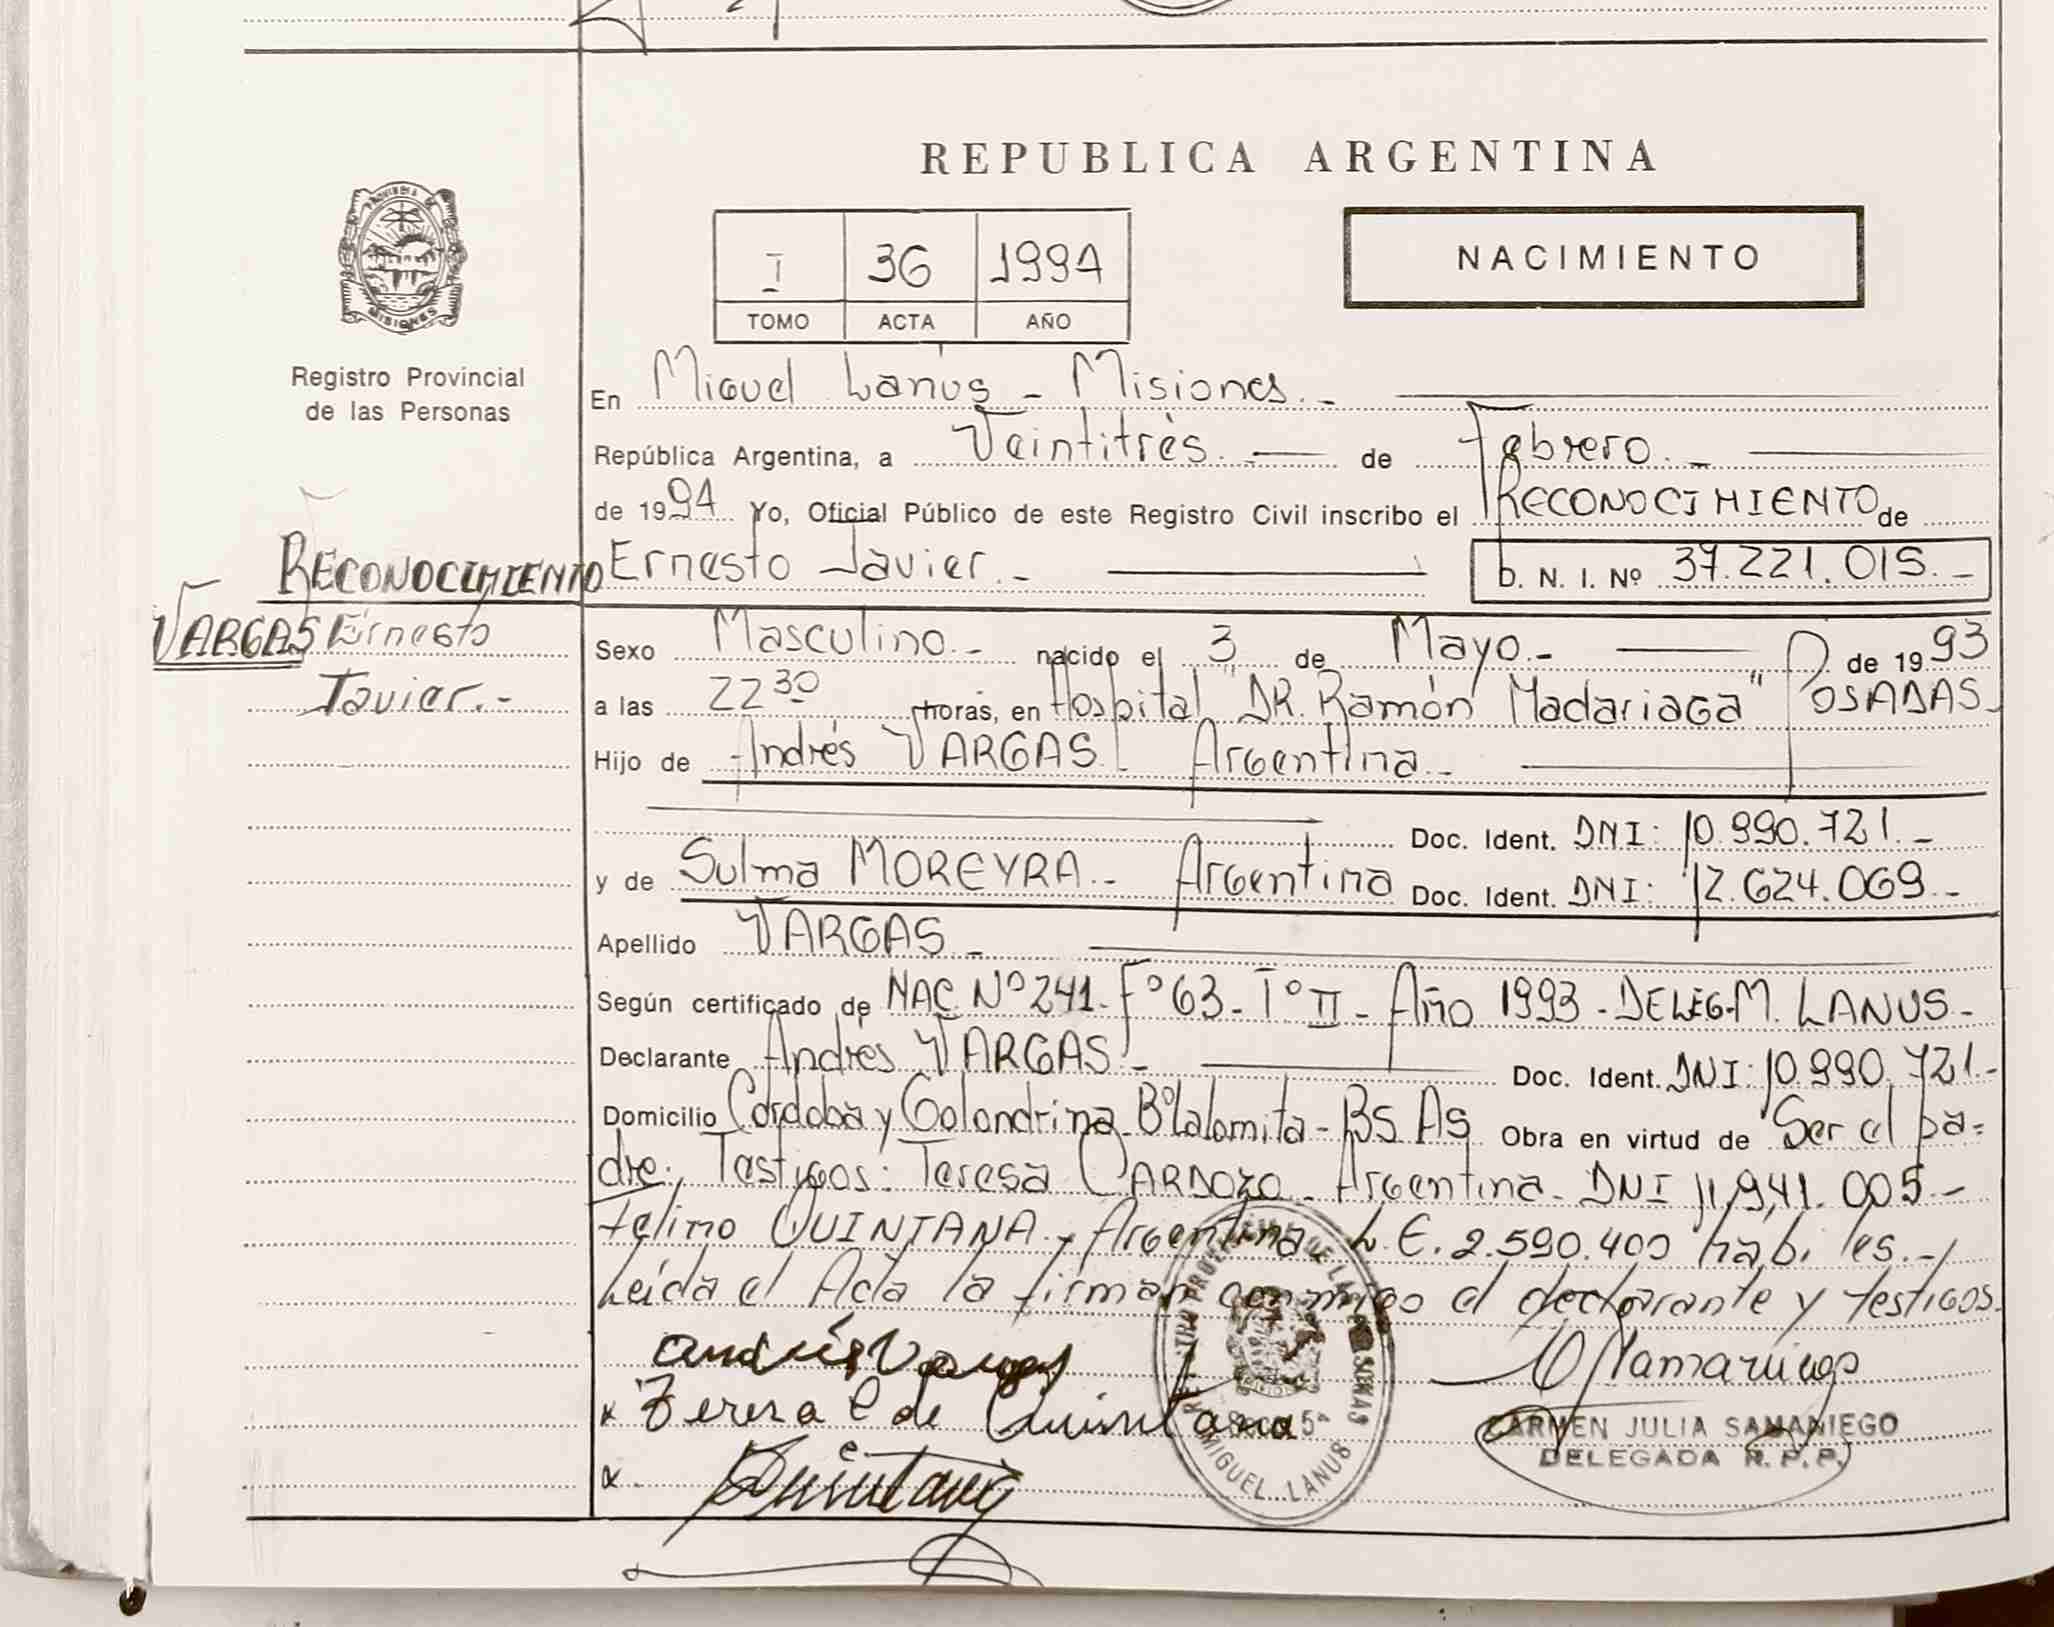 REPUBLICA ARGENTINA
I 36 1994
TOMO ACTA AÑO
NACIMIENTO
PROVINCIA DE
MISIONES
Registro Provincial
de las Personas
RECONOCIMIENTO
VARGAS Ernesto
Javier.-
En Miguel Lanús - Misiones.-
República Argentina, a Veintitrés.- de Febrero.-
de 1994 Yo, Oficial Público de este Registro Civil inscribo el RECONOCIMIENTO de
Ernesto Javier.- D. N. I. Nº 37.221.015.-
Sexo Masculino.- nacido el 3 de Mayo.- de 1993
a las 22 30 horas, en Hospital "DR. Ramón Madariaga" POSADAS-
Hijo de Andrés VARGAS- Argentina-
Doc. Ident. DNI: 10.990.721.-
y de Sulma MOREYRA.- Argentina Doc. Ident. DNI: 12.624.069.-
Apellido VARGAS-
Según certificado de NAC. Nº 241- Fº 63- Tº II- Año 1993-DELEG-M. LANUS-
Declarante Andrés VARGAS.- Doc. Ident. DNI: 10.990.721.-
Domicilio Córdoba y Golondrina Bº Lalomita-BS AS Obra en virtud de Ser el pa=
dre. Testigos: Teresa CARDOZO- Argentina- DNI 11.941.005-
Felino QUINTANA- Argentina L.E. 2.590.400 hábiles.-
Leída el Acta la firman conmigo el declarante y testigos.
Andrés Vargas
x Teresa C de Quintana
x. Quintana
REGISTRO PROVINCIAL DE LAS PERSONAS
Secc. 5ª
MIGUEL LANUS
CARMEN JULIA SAMANIEGO
DELEGADA R. P. P.